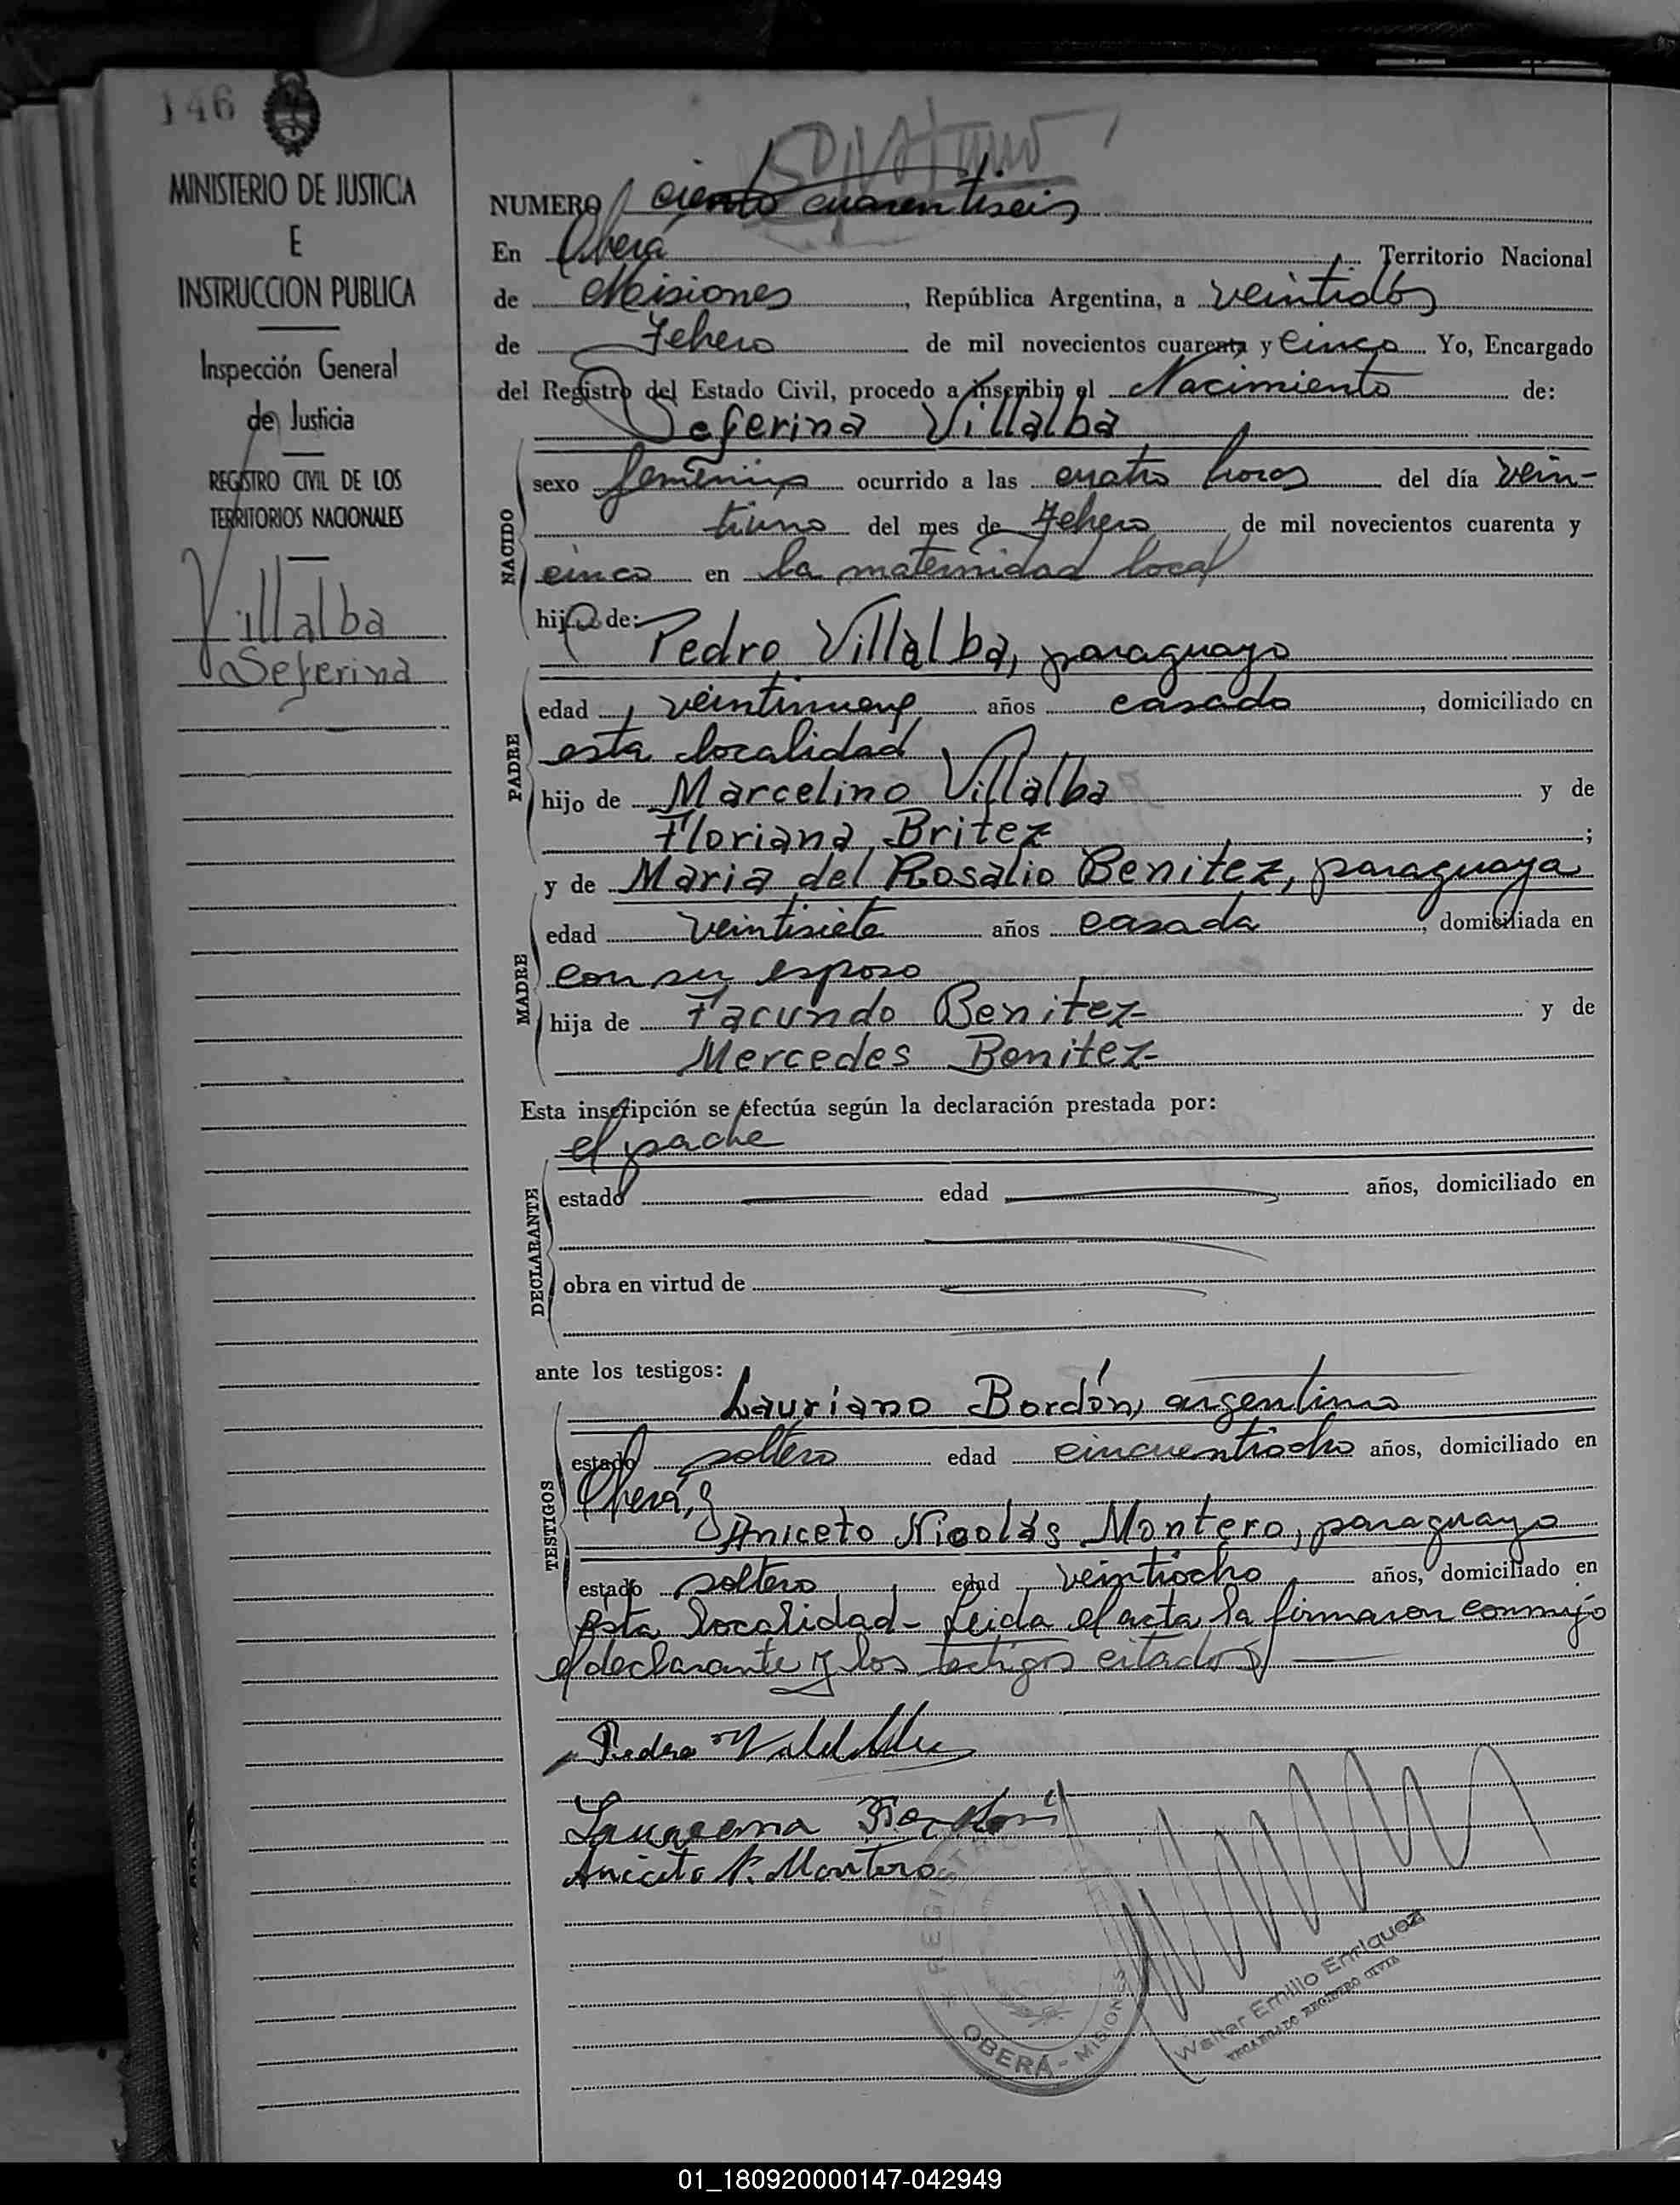 146
MINISTERIO DE JUSTICIA
E
INSTRUCCION PUBLICA
Inspección General
de Justicia
REGISTRO CIVIL DE LOS
TERRITORIOS NACIONALES
Villalba
Seferina
NUMERO ciento cuarentiseis
En Oberá Territorio Nacional
de Misiones, República Argentina, a veintidós
de Febrero de mil novecientos cuarenta y cinco Yo, Encargado
del Registro del Estado Civil, procedo a inscribir el Nacimiento de:
Seferina Villalba
NACIDO
sexo femenino ocurrido a las cuatro horas del día vein-
tiuno del mes de Febrero de mil novecientos cuarenta y
cinco en la maternidad local
hija de:
Pedro Villalba, paraguayo
PADRE
edad veintinueve años casado, domiciliado en
esta localidad
hijo de Marcelino Villalba y de
Floriana Britez;
y de Maria del Rosalio Benitez, paraguaya
MADRE
edad veintisiete años casada, domiciliada en
con su esposo
hija de Facundo Benitez y de
Mercedes Benitez
Esta inscripción se efectúa según la declaración prestada por:
el padre
DECLARANTE
estado edad años, domiciliado en
obra en virtud de
ante los testigos:
Lauriano Bordón, argentino
TESTIGOS
estado soltero edad cincuentiocho años, domiciliado en
Oberá, y
Aniceto Nicolás Montero, paraguayo
estado soltero edad veintiocho años, domiciliado en
esta localidad- Leida el acta la firmaron conmigo
el declarante y los testigos citados
Pedro
Aniceto N. Montero
OBERÁ - MISIONES
Walter Emilio Enriquez
ENCARGADO REGISTRO CIVIL
01_180920000147-042949